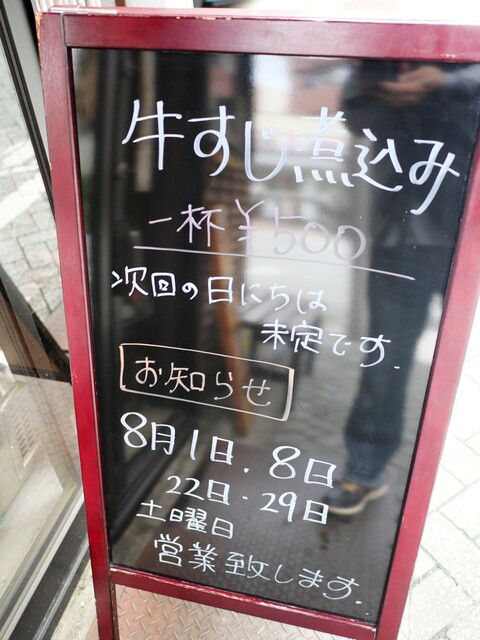 牛すじ煮込み
一杯¥500
次回の日にちは
未定です.
お知らせ
8月1日.8日
22日・29日
土曜日
営業致します.